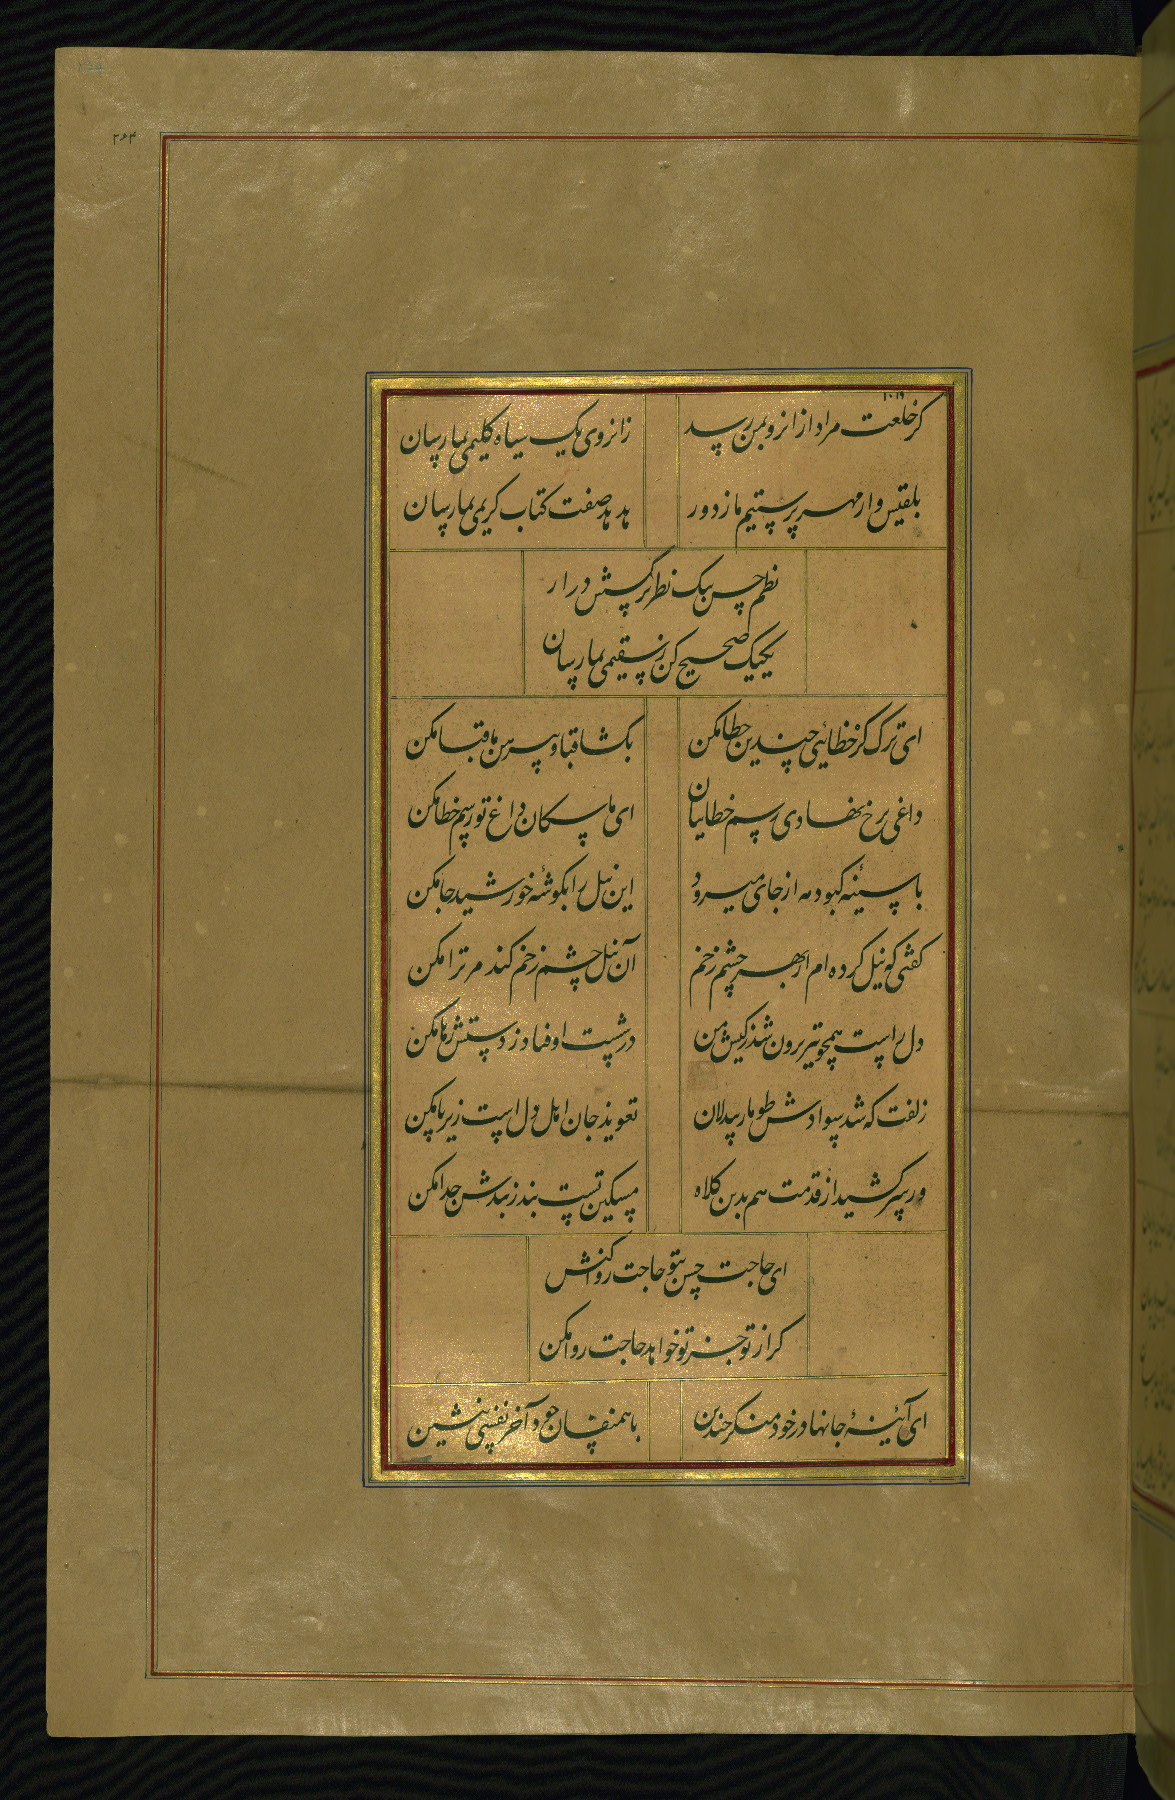 ۲۶۴
۱۰۱۹
کر خلعت مراد از انرو بمن رسد
زانروی یک سیاه کلیمی بما رسان
بلقیس وار مهر پرستیم ما ز دور
هدهد صفت کتاب کریمی بما رسان
نظم حسن بیک نظر
یکیک صحیح کن ز سقیمی بما رسان
ای ترک کز خطائی چندین خطا مکن
بکشا قبا و پیرهن ما قبا مکن
داغی برخ نهادی برسم خطاییان
ای ماه پیکان داغ تو رسم خطا مکن
با سینه کبود مه از جای میرود
این نیل را بکوشه خورشید جا مکن
کفتی که نیل کرده ام از بهر چشم زخم
آن نیل چشم زخم کند مر ترا مکن
دل راست همچو تیر برون شد ز کیش من
در شست اوفتاد ز دستش رها مکن
زلفت که شد سوادش طومار بیدلان
تعویذ جان اهل دل است زیر پا مکن
ور سر کشید از قدمت هم بدین کلاه
مسکین تست بند ز بندش جدا مکن
ای حاجت حسن بتو حاجت روا کنش
کر از تو جز تو خواهد حاجت روا مکن
ای آئینهٔ جانها در خود منکر چندین
با همنفسان خود آخر نفسی بنشین